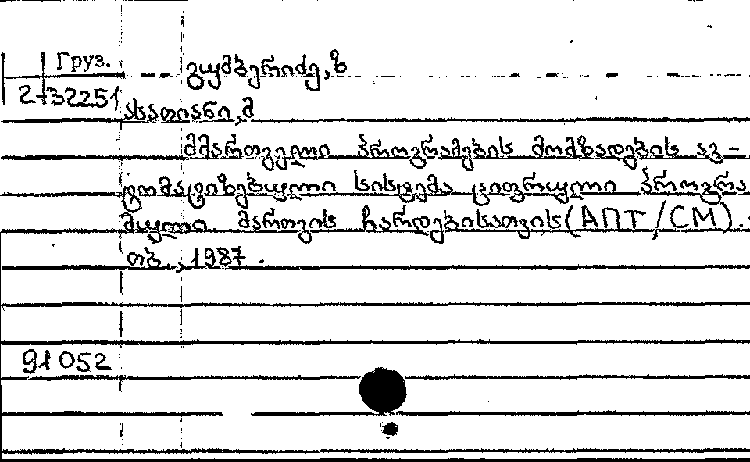 Груз.
გუმბერიძე, ზ
2-32251
ასათიანი, მ
მმართველი პროგრამების მომზადების ავ-
ტომატიზებული სისტემა ციფრული პროგრა
მული მართვის ჩარხებისათვის (АПТ/СМ).-
თბ., 1987.
91052